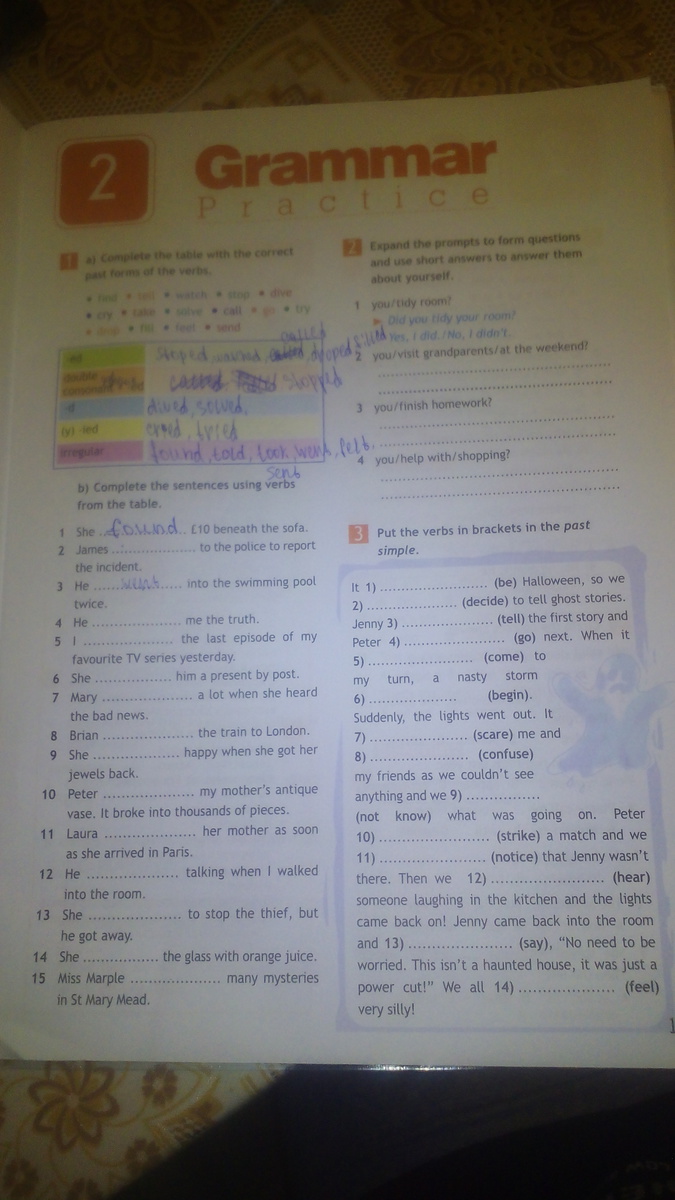 2
Grammar
Practice
1 a) Complete the table with the correct
past forms of the verbs.
• find • tell • watch • stop • dive
• cry • take • solve • call • go • try
• drop • fill • feel • send
called
-ed
double
consonant
stopped
-d dived, solved,
(y) -ied cried, tried
irregular found, told, took, went, felt.
sent
b) Complete the sentences using verbs
from the table.
1 She ..found.. £10 beneath the sofa.
2 James .................... to the police to report
the incident.
3 He .................... into the swimming pool
twice.
4 He .................... me the truth.
5 I .................... the last episode of my
favourite TV series yesterday.
6 She .................... him a present by post.
7 Mary .................... a lot when she heard
the bad news.
8 Brian .................... the train to London.
9 She .................... happy when she got her
jewels back.
10 Peter .................... my mother's antique
vase. It broke into thousands of pieces.
11 Laura .................... her mother as soon
as she arrived in Paris.
12 He .................... talking when I walked
into the room.
13 She .................... to stop the thief, but
he got away.
14 She .................... the glass with orange juice.
15 Miss Marple .................... many mysteries
in St Mary Mead.
2 Expand the prompts to form questions
and use short answers to answer them
about yourself.
1 you/tidy room?
► Did you tidy your room?
Yes, I did./No, I didn't.
2 you/visit grandparents/at the weekend?
3 you/finish homework?
4 you/help with/shopping?
3 Put the verbs in brackets in the past
simple.
It 1) .................... (be) Halloween, so we
2) .................... (decide) to tell ghost stories.
Jenny 3) .................... (tell) the first story and
Peter 4) .................... (go) next. When it
5) .................... (come) to
my turn, a nasty storm
6) .................... (begin).
Suddenly, the lights went out. It
7) .................... (scare) me and
8) .................... (confuse)
my friends as we couldn't see
anything and we 9) ...............
(not know) what was going on. Peter
10) .................... (strike) a match and we
11) .................... (notice) that Jenny wasn't
there. Then we 12) .................... (hear)
someone laughing in the kitchen and the lights
came back on! Jenny came back into the room
and 13) .................... (say), "No need to be
worried. This isn't a haunted house, it was just a
power cut!" We all 14) .................... (feel)
very silly!